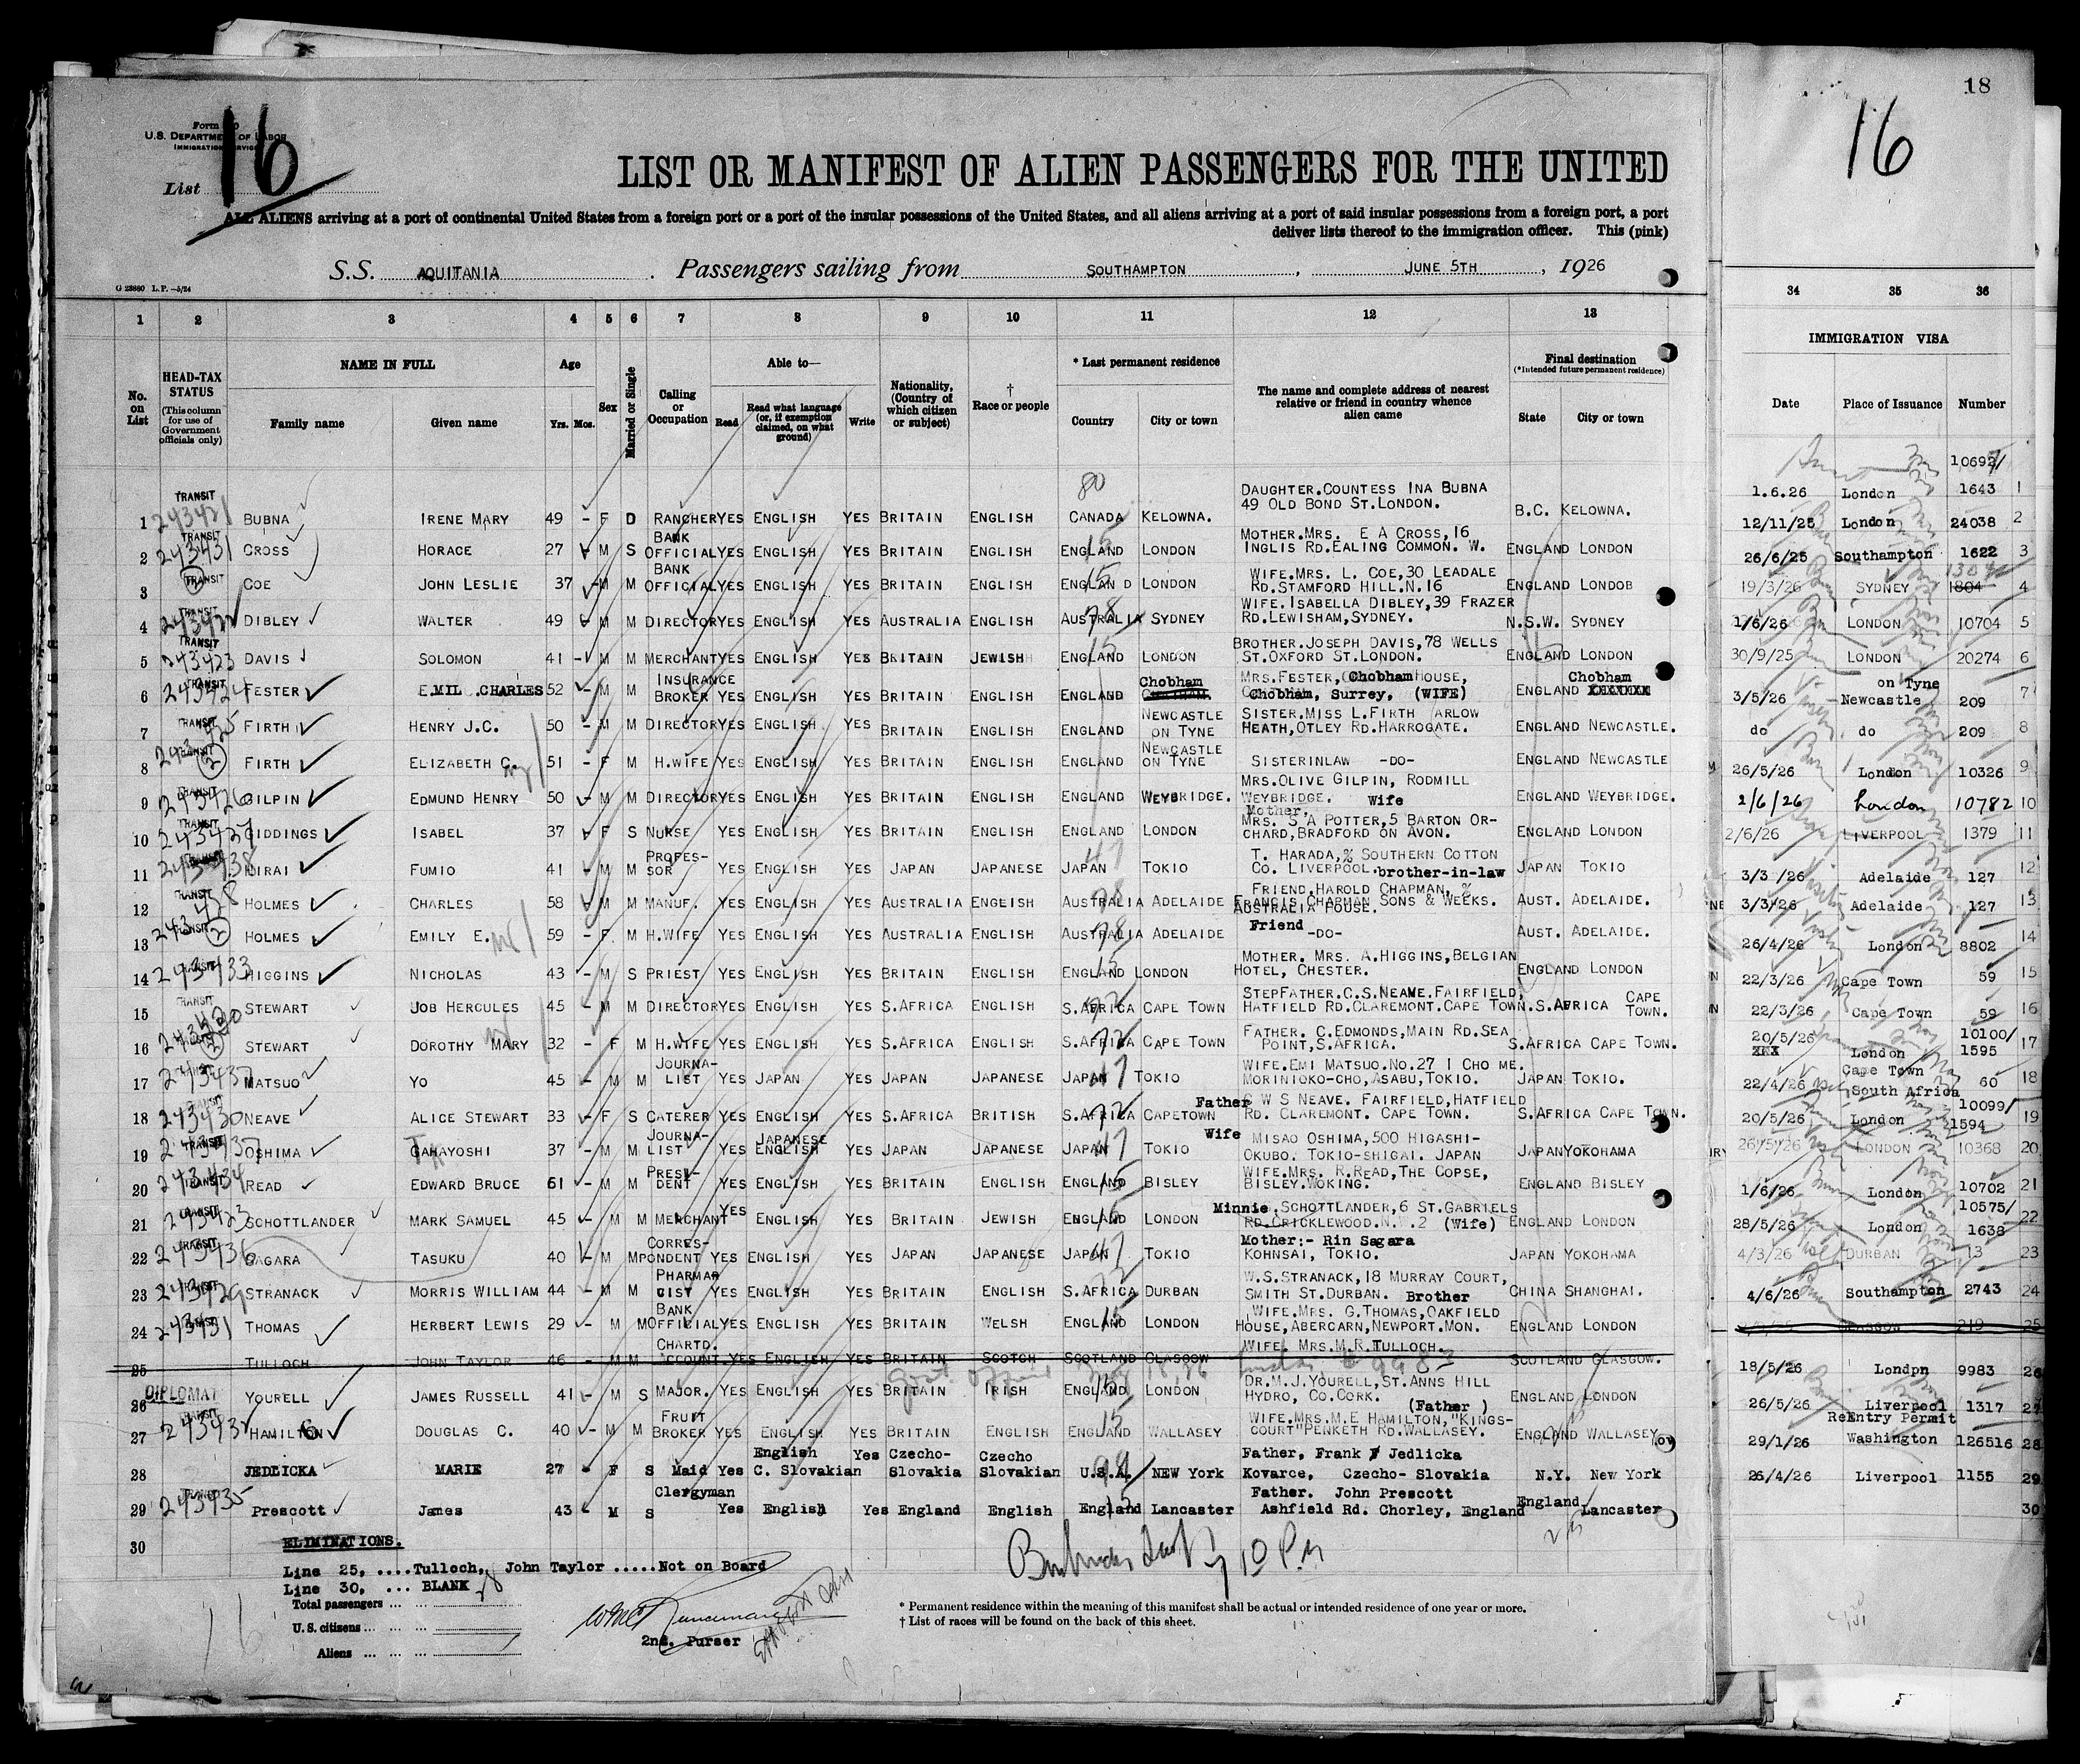 18
16
Form
U.S. DEPARTMENT OF LABOR
IMMIGRATION SERVICE
List 16
LIST OR MANIFEST OF ALIEN PASSENGERS FOR THE UNITED
ALL ALIENS arriving at a port of continental United States from a foreign port or a port of the insular possessions of the United States, and all aliens arriving at a port of said insular possessions from a foreign port, a port
deliver lists thereof to the immigration officer. This (pink)
S.S. AQUITANIA. Passengers sailing from SOUTHAMPTON, JUNE 5TH, 1926
G 23880 L.P.—5/24
1 2 3 4 5 6 7 8 9 10 11 12 13 34 35 36
No. on List
HEAD-TAX STATUS (This column for use of Government officials only)
NAME IN FULL Family name Given name
Age Yrs. Mos.
Sex
Married or Single
Calling or Occupation
Able to— Read Read what language (or, if exemption claimed, on what ground) Write
Nationality, (Country of which citizen or subject)
† Race or people
* Last permanent residence Country City or town
The name and complete address of nearest relative or friend in country whence alien came
Final destination (*Intended future permanent residence) State City or town
IMMIGRATION VISA Date Place of Issuance Number
1 TRANSIT 243421 BUBNA IRENE MARY 49 - F D RANCHER YES ENGLISH YES BRITAIN ENGLISH CANADA KELOWNA. DAUGHTER.COUNTESS INA BUBNA 49 OLD BOND ST.LONDON. B.C. KELOWNA.
2 TRANSIT 243431 CROSS HORACE 27 - M S BANK OFFICIAL YES ENGLISH YES BRITAIN ENGLISH ENGLAND LONDON MOTHER.MRS. E A CROSS,16 INGLIS RD.EALING COMMON. W. ENGLAND LONDON
3 TRANSIT COE JOHN LESLIE 37 - M M BANK OFFICIAL YES ENGLISH YES BRITAIN ENGLISH ENGLAND LONDON WIFE.MRS. L. COE,30 LEADALE RD.STAMFORD HILL.N.16 ENGLAND LONDOB
4 TRANSIT DIBLEY WALTER 49 M M DIRECTOR YES ENGLISH YES AUSTRALIA ENGLISH AUSTRALIA SYDNEY WIFE.ISABELLA DIBLEY,39 FRAZER RD.LEWISHAM,SYDNEY. N.S.W. SYDNEY
5 TRANSIT 243423 DAVIS SOLOMON 41 - M M MERCHANT YES ENGLISH YES BRITAIN JEWISH ENGLAND LONDON BROTHER.JOSEPH DAVIS,78 WELLS ST.OXFORD ST.LONDON. ENGLAND LONDON
6 TRANSIT 243424 FESTER EMIL CHARLES 52 - M M INSURANCE BROKER YES ENGLISH YES BRITAIN ENGLISH ENGLAND Chobham MRS.FESTER, Chobham HOUSE, Chobham, Surrey, (WIFE) ENGLAND Chobham XXXXXXX
7 FIRTH HENRY J.C. 50 - M M DIRECTOR YES ENGLISH YES BRITAIN ENGLISH ENGLAND NEWCASTLE ON TYNE SISTER.MISS L.FIRTH ARLOW HEATH,OTLEY RD.HARROGATE. ENGLAND NEWCASTLE.
8 FIRTH ELIZABETH C. 51 - F M H.WIFE YES ENGLISH YES BRITAIN ENGLISH ENGLAND NEWCASTLE ON TYNE SISTERINLAW -DO- ENGLAND NEWCASTLE
9 TRANSIT 243426 GILPIN EDMUND HENRY 50 - M M DIRECTOR YES ENGLISH YES BRITAIN ENGLISH ENGLAND WEYBRIDGE. MRS.OLIVE GILPIN, RODMILL WEYBRIDGE. Wife ENGLAND WEYBRIDGE.
10 TRANSIT 243427 GIDDINGS ISABEL 37 F S NURSE YES ENGLISH YES BRITAIN ENGLISH ENGLAND LONDON Mother, MRS. S A POTTER,5 BARTON OR-CHARD,BRADFORD ON AVON. ENGLAND LONDON
11 243438 HIRAI FUMIO 41 - M M PROFES-SOR YES ENGLISH YES JAPAN JAPANESE JAPAN TOKIO T. HARADA,% SOUTHERN COTTON CO. LIVERPOOL. brother-in-law JAPAN TOKIO
12 TRANSIT HOLMES CHARLES 58 M M MANUF. YES ENGLISH YES AUSTRALIA ENGLISH AUSTRALIA ADELAIDE FRIEND,HAROLD CHAPMAN, % FRANCIS CHAPMAN SONS & WEEKS. AUSTRALIA HOUSE. AUST. ADELAIDE.
13 HOLMES EMILY E. 59 - F M H.WIFE YES ENGLISH YES AUSTRALIA ENGLISH AUSTRALIA ADELAIDE Friend -DO- AUST. ADELAIDE.
14 243433 HIGGINS NICHOLAS 43 - M S PRIEST YES ENGLISH YES BRITAIN ENGLISH ENGLAND LONDON MOTHER. MRS. A.HIGGINS,BELGIAN HOTEL, CHESTER. ENGLAND LONDON
15 TRANSIT STEWART JOB HERCULES 45 - M M DIRECTOR YES ENGLISH YES S.AFRICA ENGLISH S.AFRICA CAPE TOWN STEPFATHER.C.S.NEAVE.FAIRFIELD, HATFIELD RD.CLAREMONT.CAPE TOWN. S.AFRICA CAPE TOWN.
16 STEWART DOROTHY MARY 32 - F M H.WIFE YES ENGLISH YES S.AFRICA ENGLISH S.AFRICA CAPE TOWN FATHER. C.EDMONDS,MAIN RD.SEA POINT,S.AFRICA. S.AFRICA CAPE TOWN.
17 243437 MATSUO YO 45 - M M JOURNA-LIST YES JAPAN YES JAPAN JAPANESE JAPAN TOKIO WIFE.EMI MATSUO.No.27 I CHO ME. MORINIOKO-CHO,ASABU,TOKIO. JAPAN TOKIO.
18 243430 NEAVE ALICE STEWART 33 - F S CATERER YES ENGLISH YES S.AFRICA BRITISH S.AFRICA CAPETOWN Father W S NEAVE. FAIRFIELD,HATFIELD RD. CLAREMONT. CAPE TOWN. S.AFRICA CAPE TOWN.
19 243437 OSHIMA GAHAYOSHI 37 - M M JOURNA-LIST YES JAPANESE ENGLISH YES JAPAN JAPANESE JAPAN TOKIO Wife MISAO OSHIMA,500 HIGASHI-OKUBO. TOKIO-SHIGAI. JAPAN JAPAN YOKOHAMA
20 243434 READ EDWARD BRUCE 61 - M M PRESI-DENT YES ENGLISH YES BRITAIN ENGLISH ENGLAND BISLEY WIFE.MRS. R.READ,THE COPSE, BISLEY.WOKING. ENGLAND BISLEY
21 243423 SCHOTTLANDER MARK SAMUEL 45 - M M MERCHANT YES ENGLISH YES BRITAIN JEWISH ENGLAND LONDON Minnie, SCHOTTLANDER,6 ST.GABRIELS RD.CRICKLEWOOD.N. .2 (Wife) ENGLAND LONDON
22 TRANSIT 243436 SAGARA TASUKU 40 - M M CORRES-PONDENT YES ENGLISH YES JAPAN JAPANESE JAPAN TOKIO Mother:- Rin Sagara KOHNSAI, TOKIO. JAPAN YOKOHAMA
23 243429 STRANACK MORRIS WILLIAM 44 - M M PHARMACIST YES ENGLISH YES BRITAIN ENGLISH S.AFRICA DURBAN W.S.STRANACK,18 MURRAY COURT, SMITH ST.DURBAN. Brother CHINA SHANGHAI.
24 243431 THOMAS HERBERT LEWIS 29 - M M BANK OFFICIAL YES ENGLISH YES BRITAIN WELSH ENGLAND LONDON WIFE.MRS. G.THOMAS,OAKFIELD HOUSE,ABERCARN,NEWPORT.MON. ENGLAND LONDON
25 TULLOCH JOHN TAYLOR 46 - M M CHARTD. ACCOUNT. YES ENGLISH YES BRITAIN SCOTCH SCOTLAND GLASGOW WIFE. MRS.M.R.TULLOCH. SCOTLAND GLASGOW.
26 DIPLOMAT YOURELL JAMES RUSSELL 41 - M S MAJOR. YES ENGLISH YES BRITAIN IRISH ENGLAND LONDON DR.M.J.YOURELL,ST.ANNS HILL HYDRO, CO.CORK. (Father ) ENGLAND LONDON
27 243432 HAMILTON DOUGLAS C. 40 - M M FRUIT BROKER YES ENGLISH YES BRITAIN ENGLISH ENGLAND WALLASEY WIFE.MRS.M.E HAMILTON,"KINGS-COURT"PENKETH RD.WALLASEY. ENGLAND WALLASEY
28 JEDLICKA MARIE 27 - F S Maid Yes English C. Slovakian Yes Czecho-Slovakia Czecho Slovakian U.S.A. NEW York Father, Frank Jedlicka Kovarce, Czecho- Slovakia N.Y. New York
29 243435 Prescott James 43 - M S Clergyman Yes English Yes England English England Lancaster Father. John Prescott Ashfield Rd. Chorley, England England Lancaster
30
10692/
1.6.26 London 1643 1
12/11/25 London 24038 2
26/6/25 Southampton 1622 3
19/3/26 SYDNEY 1804 4
1/6/26 LONDON 10704 5
30/9/25 LONDON 20274 6
3/5/26 Newcastle on Tyne 209 7
do do 209 8
26/5/26 London 10326 9
2/6/26 London 10782 10
2/6/26 LIVERPOOL 1379 11
12
3/3/26 Adelaide 127
3/3/26 Adelaide 127 13
26/4/26 London 8802 14
22/3/26 Cape Town 59 15
22/3/26 Cape Town 59 16
20/5/26 London 10100/ 1595 17
22/4/26 Cape Town South Africa 60 18
20/5/26 London 10099/ 1594 19
26/5/26 LONDON 10368 20
1/6/26 London 10702 21
28/5/26 London 10575/ 1638 22
4/3/26 DURBAN 13 23
4/6/26 Southampton 2743 24
GLASGOW 219 25
18/5/26 Londpn 9983 26
26/5/26 Liverpool 1317 27
29/1/26 ReEntry Permit Washington 126516 28
26/4/26 Liverpool 1155 29
30
ELIMINATIONS.
Line 25, ....Tulloch, John Taylor .....Not on Board
Line 30, ... BLANK
Total passengers
U.S. citizens
Aliens
2nd. Purser
10 PM
* Permanent residence within the meaning of this manifest shall be actual or intended residence of one year or more.
† List of races will be found on the back of this sheet.